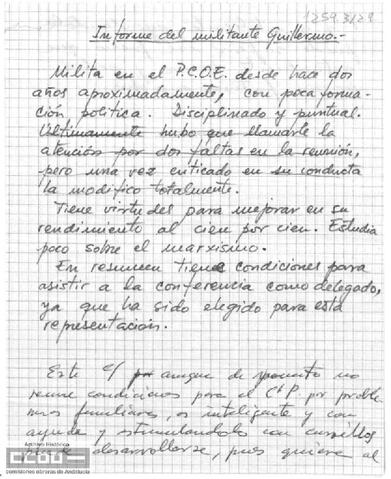 1259.3/29
Informe del militante Guillermo.-
Milita en el P.C.O.E. desde hace dos
años aproximadamente, con poca forma-
ción política. Disciplinado y puntual.
Ultimamente hubo que llamarle la
atención por dos faltas en la reunión,
pero una vez criticado en su conducta
la modifico totalmente.
Tiene virtudes para mejorar en su
rendimiento al cien por cien. Estudia
poco sobre el marxismo.
En resumen tiene condiciones para
asistir a la conferencia como delegado,
ya que ha sido elegido para esta
representación.
Este c/ aunque de momento no
reune condiciones para el por proble
mas familiares, es inteligente y con
ayuda y stimulandolo con cursillos
desarrollarse, pues quiere al
Archivo Histórico
comisiones obreras de Andalucía